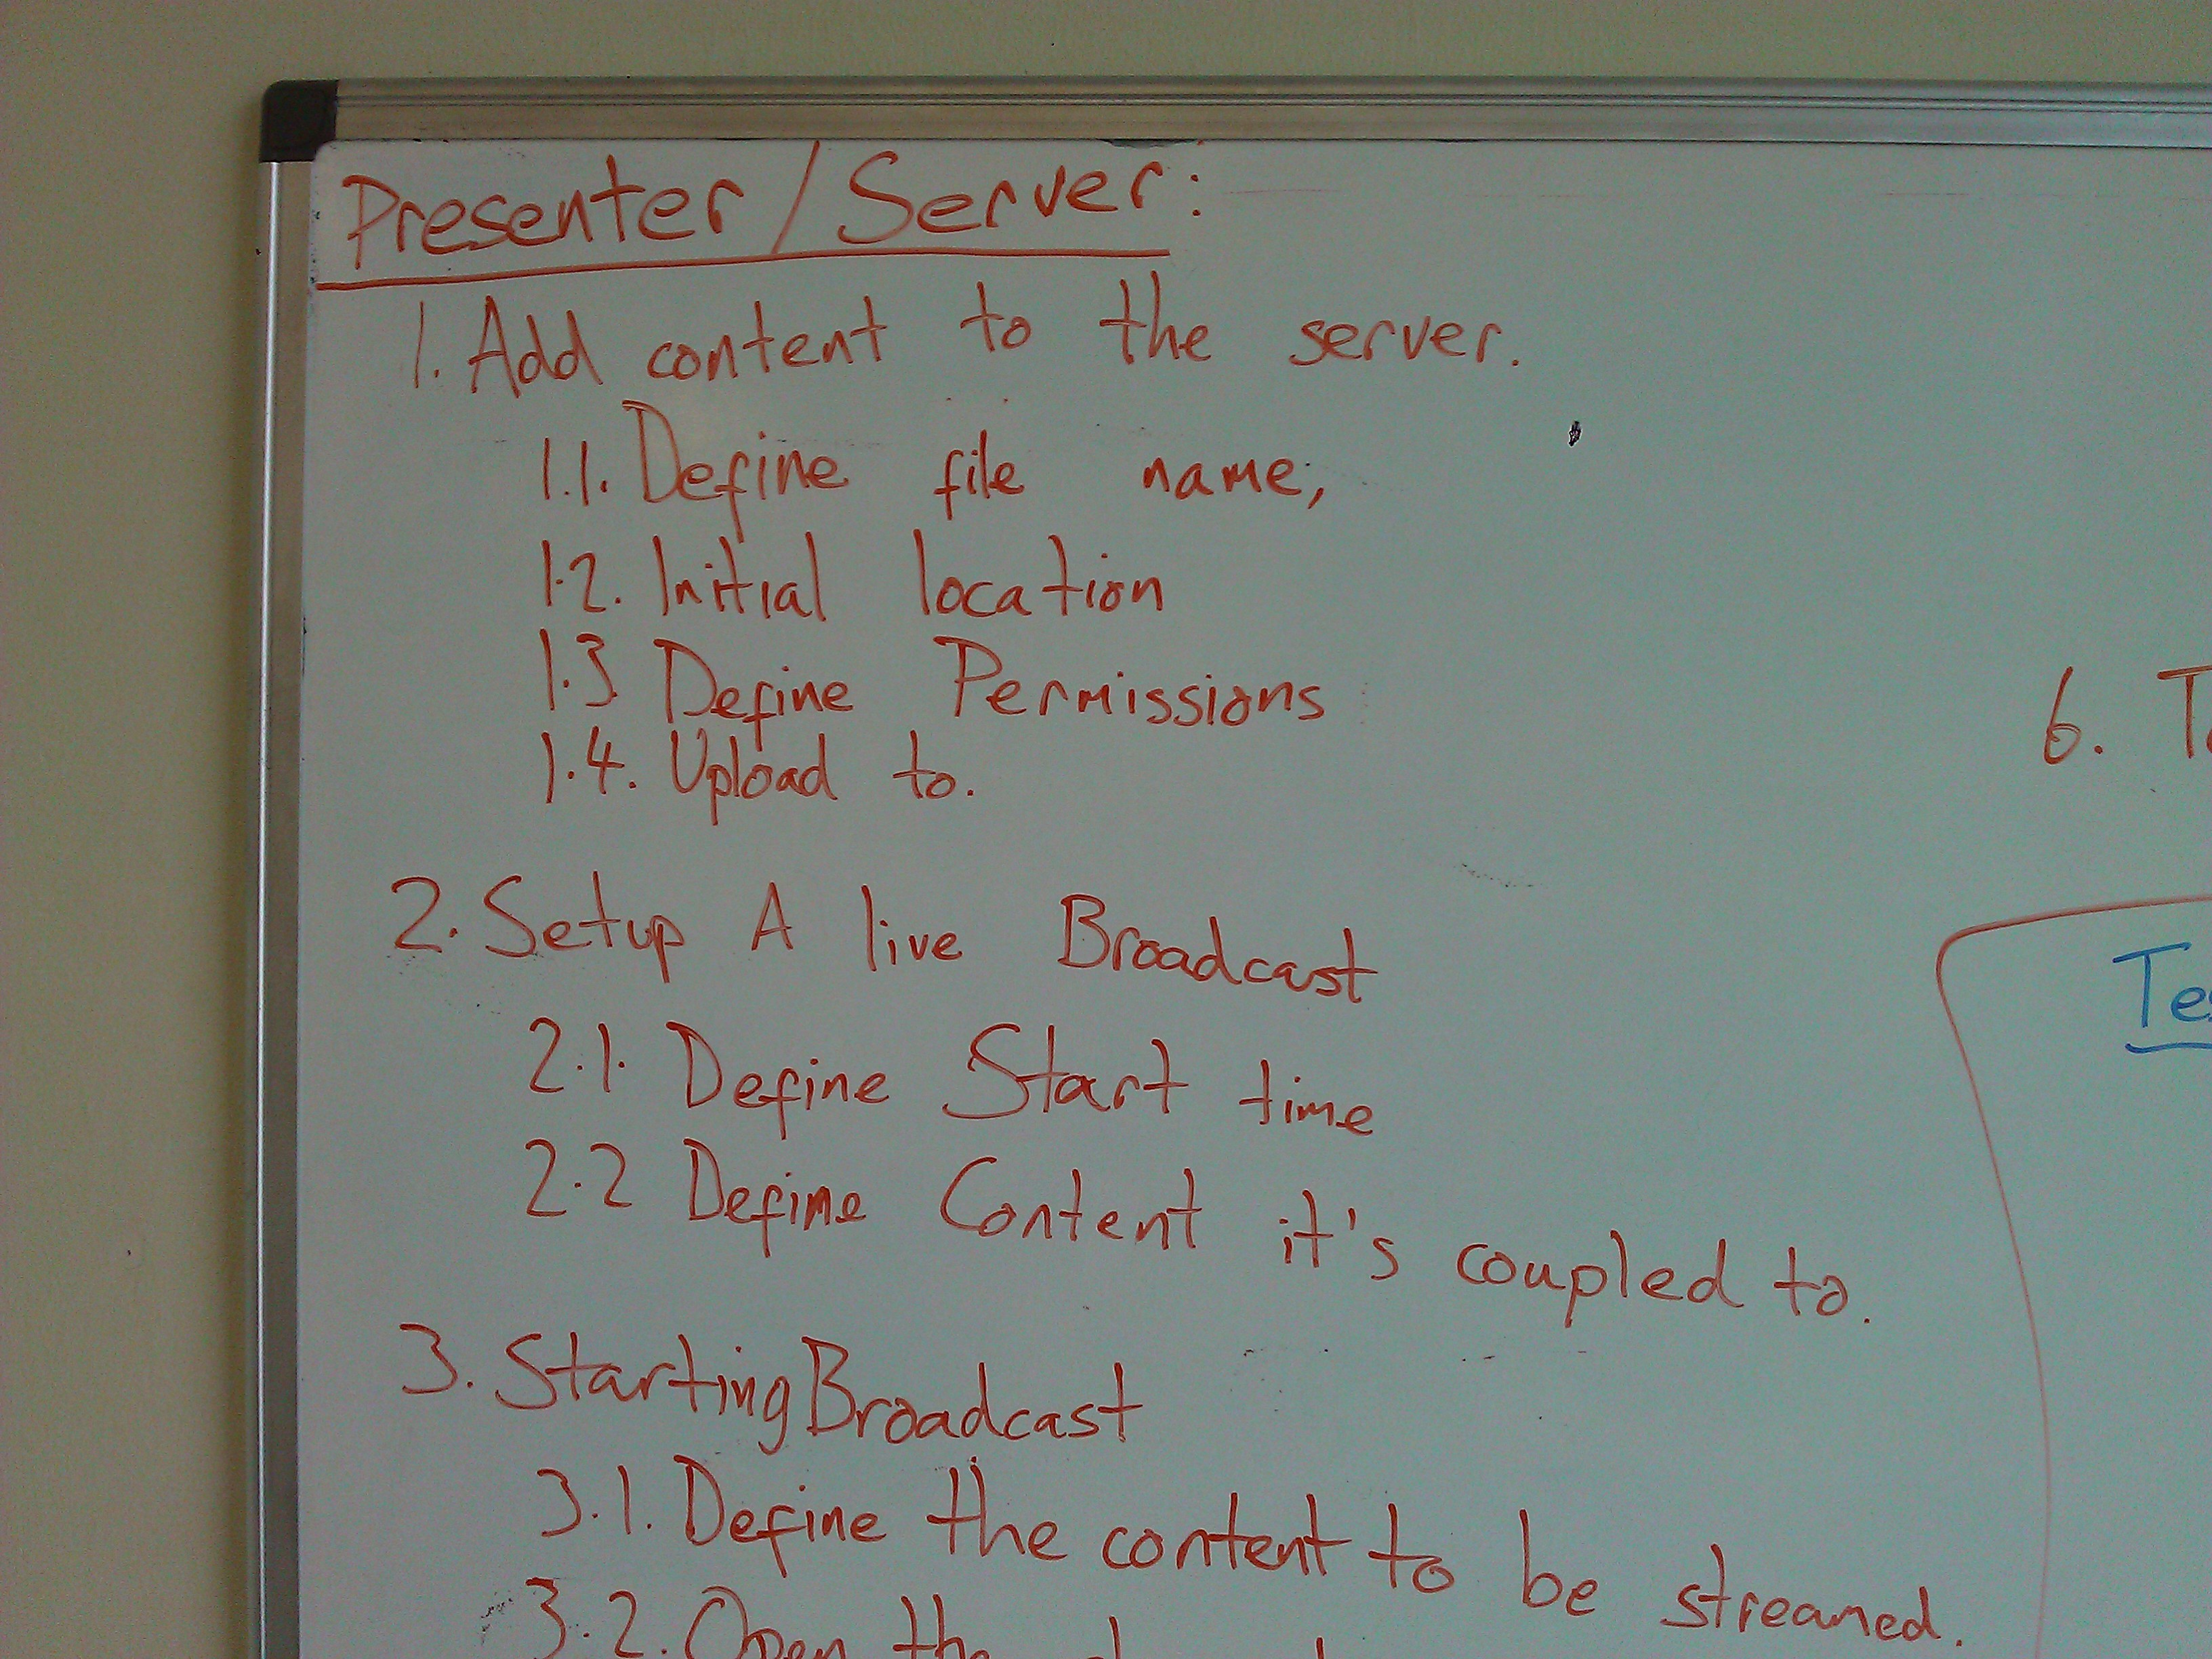 Presenter/Server:
1. Add content to the server.
1.1. Define file name,
1.2. Initial location
1.3 Define Permissions
1.4. Upload to.
2. Setup A live Broadcast
2.1. Define Start time
2.2 Define Content it's coupled to.
3. Starting Broadcast
3.1. Define the content to be streamed.
3.2. Open the
6.